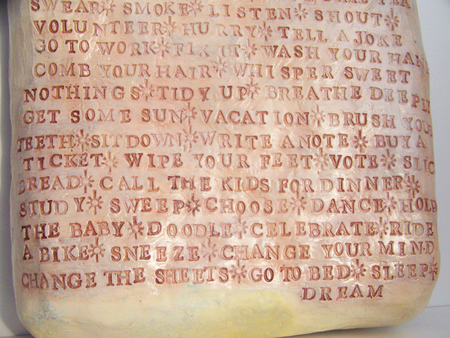 SWEAR * SMOKE * LISTEN * SHOUT *
VOLUNTEER * HURRY * TELL A JOKE
GO TO WORK * FIX IT * WASH YOUR
COMB YOUR HAIR * WHISPER SWEET
NOTHINGS * TIDY UP * BREATHE
GET SOME SUN * VACATION * BRUSH
TEETH * SIT DOWN * WRITE A NOTE * BUY A
TICKET * WIPE YOUR FEET * VOTE *
BREAD * CALL THE KIDS FOR DINNER *
STUDY * SWEEP * CHOOSE * DANCE *
THE BABY * DOODLE * CELEBRATE * RIDE
A BIKE * SNEEZE * CHANGE YOUR MIND
CHANGE THE SHEETS * GO TO BED * SLEEP *
DREAM